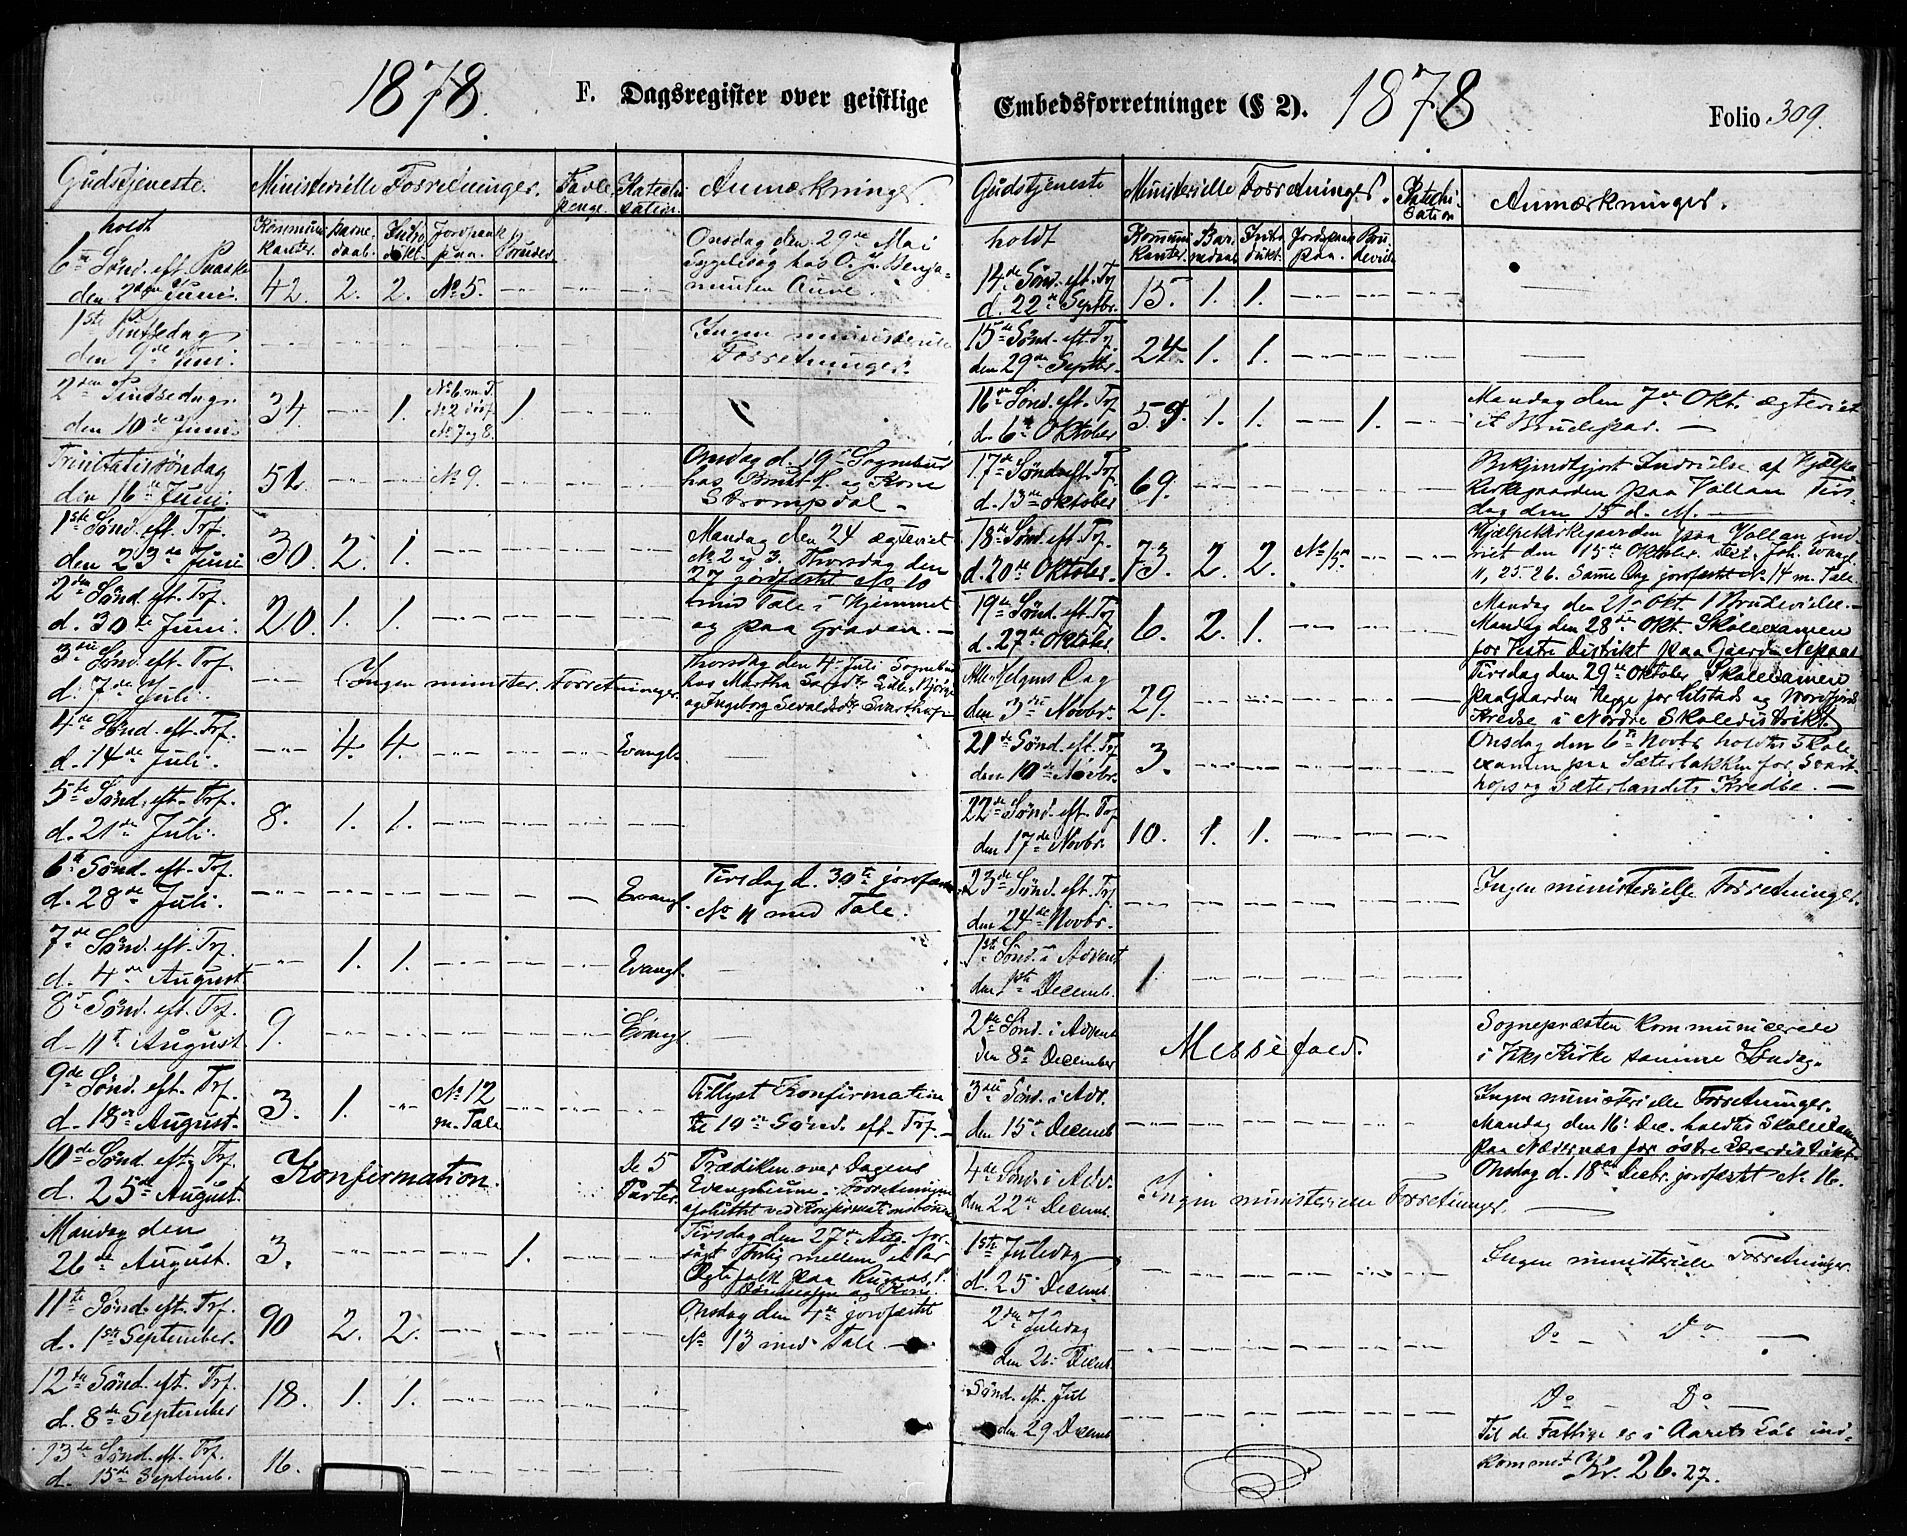 1878.
F. Dagsregister over geistlige
Gudstjeneste. Ministerielle Forretninger. Tavle penge. Katechisation. Anmærkninger.
holdt
Kommunikanter. Barnedaab. Introdukt. Jordpaak. Brudev.
6te Sønd. eft. Paaske
den 2den Juni. 42. 2. 2. No 5.
Onsdag den 29de Mai
hos O. J. Benja-
minsen Aune.
1ste Pintsedag
den 9de Juni.
Ingen ministerielle
Forretninger.
2den Pintsedag.
den 10de Juni. 34. 1. No 6 m. T.
No 2
No 7 og 8. 1.
Trinitatissøndag
den 16de Juni. 51. No 9.
Onsdag d. 19de Sognebud
hos og Kone
Strompdal.
1ste Sønd. eft. Trf.
den 23de Juni 30. 2. 1.
Mandag den 24 ægteviet
No 2 og 3. Thorsdag den
27 jordfæstet No 10
2den Sønd. eft. Trf.
d. 30te Juni. 20. 1. 1.
med Tale i Hjemmet
og paa Graven.
3die Sønd. eft. Trf.
d. 7de Juli. Ingen minister. Forretninger.
Thorsdag den 4de Juli Sognebud
hos Martha
og Ingeborg Sevaldsdr Svarthopen
4de Sønd. eft. Trf.
d. 14de Juli. 4. 4. Evangl.
5te Sønd. eft. Trf.
d. 21de Juli. 8. 1. 1.
6te Sønd. eft. Trf.
d. 28de Juli. Evangl.
Tirsdag d. 30te jordfæstet
No 11 med Tale.
7de Sønd. eft. Trf.
d. 4de August 1. 1. Evangl.
8de Sønd. eft. Trf.
d. 11te August 9. Evangl.
9de Sønd. eft. Trf.
d. 18de August. 3. 1. No 12
m. Tale
Tillyst Konfirmation
til 10de Sønd. eft. Trf.
10de Sønd. eft. Trf.
d. 25de August. Konfirmation. De 5
Parter.
Prædiken over Dagens
Evangelium. Forretningen
afsluttet ved Konfirmationsbønnen
Mandag den
26de August. 3. 1.
Tirsdag den 27de Aug. for-
søgt Forlig mellem et Par
Ægtefolk paa Rugaas,
og Kone.
11te Sønd. eft. Trf.
d. 1ste September. 90 2. 2.
Onsdag den 4de jordfæstet
No 13 med Tale.
12te Sønd. eft. Trf.
d. 8de September 18. 1. 1.
13de Sønd. eft. Trf.
d. 15de Septemb. 16.
Embedsforretninger (§ 2). 1878
Folio 309.
Gudstjeneste Ministerielle Forretninger. Katechisation Anmærkninger.
holdt
Kommunikanter. Barnedaab. Introdukt. Jordspaak. Brudevielse
14de Sønd. eft. Trf
d. 22de Septbr. 15. 1. 1.
15de Sønd. eft. Trf.
den 29de Septbr. 24. 1. 1.
16de Sønd. eft. Trf.
d. 6te Oktober 59. 1. 1. 1.
Mandag den 7de Okt. ægteviet
et Brudepar.
17de Sønd. eft. Trf.
d. 13de Oktober 69.
Bekjendtgjort Indvielse af Hjælpe-
kirkegaarden paa Vollan Tirs-
dag den 15 d. M.
18de Sønd. eft. Trf.
d. 20de Oktober. 73. 2. 2. No 15.
Hjælpekirkegaarden paa Vollan ind-
viet den 15de Oktober. Text. Joh. Evangl.
11, 25-26. Samme Dag jordfæstet No 14 m. Tale
19de Sønd. eft. Trf
d. 27de Oktober. 6. 2. 1.
Mandag den 21de Okt. 1 Brudevielse.
Mandag den 28de Okt. Skoleexamen
for Vestre Distrikt paa Gaarden
Alle Helgens Dag
den 3die Novbr. 29.
Tirsdag den 29de Oktober Skoleexamen
paa Gaarden Hegge for og Nordfjords
Kredse i Nordre Skoledistrikt.
21de Sønd. eft. Trf
den 10de Novbr. 3.
Onsdag den 6te Novbr holdtes Skole-
examen paa Sæterbakken for Svart-
hops og Sæterlandets Kredse.
22de Sønd. eft. Trf
den 17de Novbr. 10. 1. 1.
23de Sønd. eft. Trf
den 24de Novbr.
Ingen ministerielle Forretninger.
1ste Sønd. i Advent
den 1ste Decemb. 1.
2den Sønd. i Advent
den 8de December Messefald.
Sognepræsten kommunicerede
i Viks Kirke samme Søndag.
3die Sønd. i Adv.
den 15de Decemb.
Ingen ministerielle Forretninger.
Mandag den 16de Dec. holdtes Skoleexamen
paa Nædernæs for østre Lærerdistrikt.
4de Sønd. i Adv.
den 22de Decemb. Ingen ministerielle Forretninger.
Onsdag d. 18de Decbr. jordfæstet No 16.
1ste Juledag
d. 25 Decemb.
Ingen ministerielle Forretninger
2den Juledag
den 26. Decemb.
Do - Do -
Sønd. eft. Jul
den 29 Decemb.
Do - Do -
Til de Fattige er i Aarets Løb ind-
kommet Kr. 26.27.